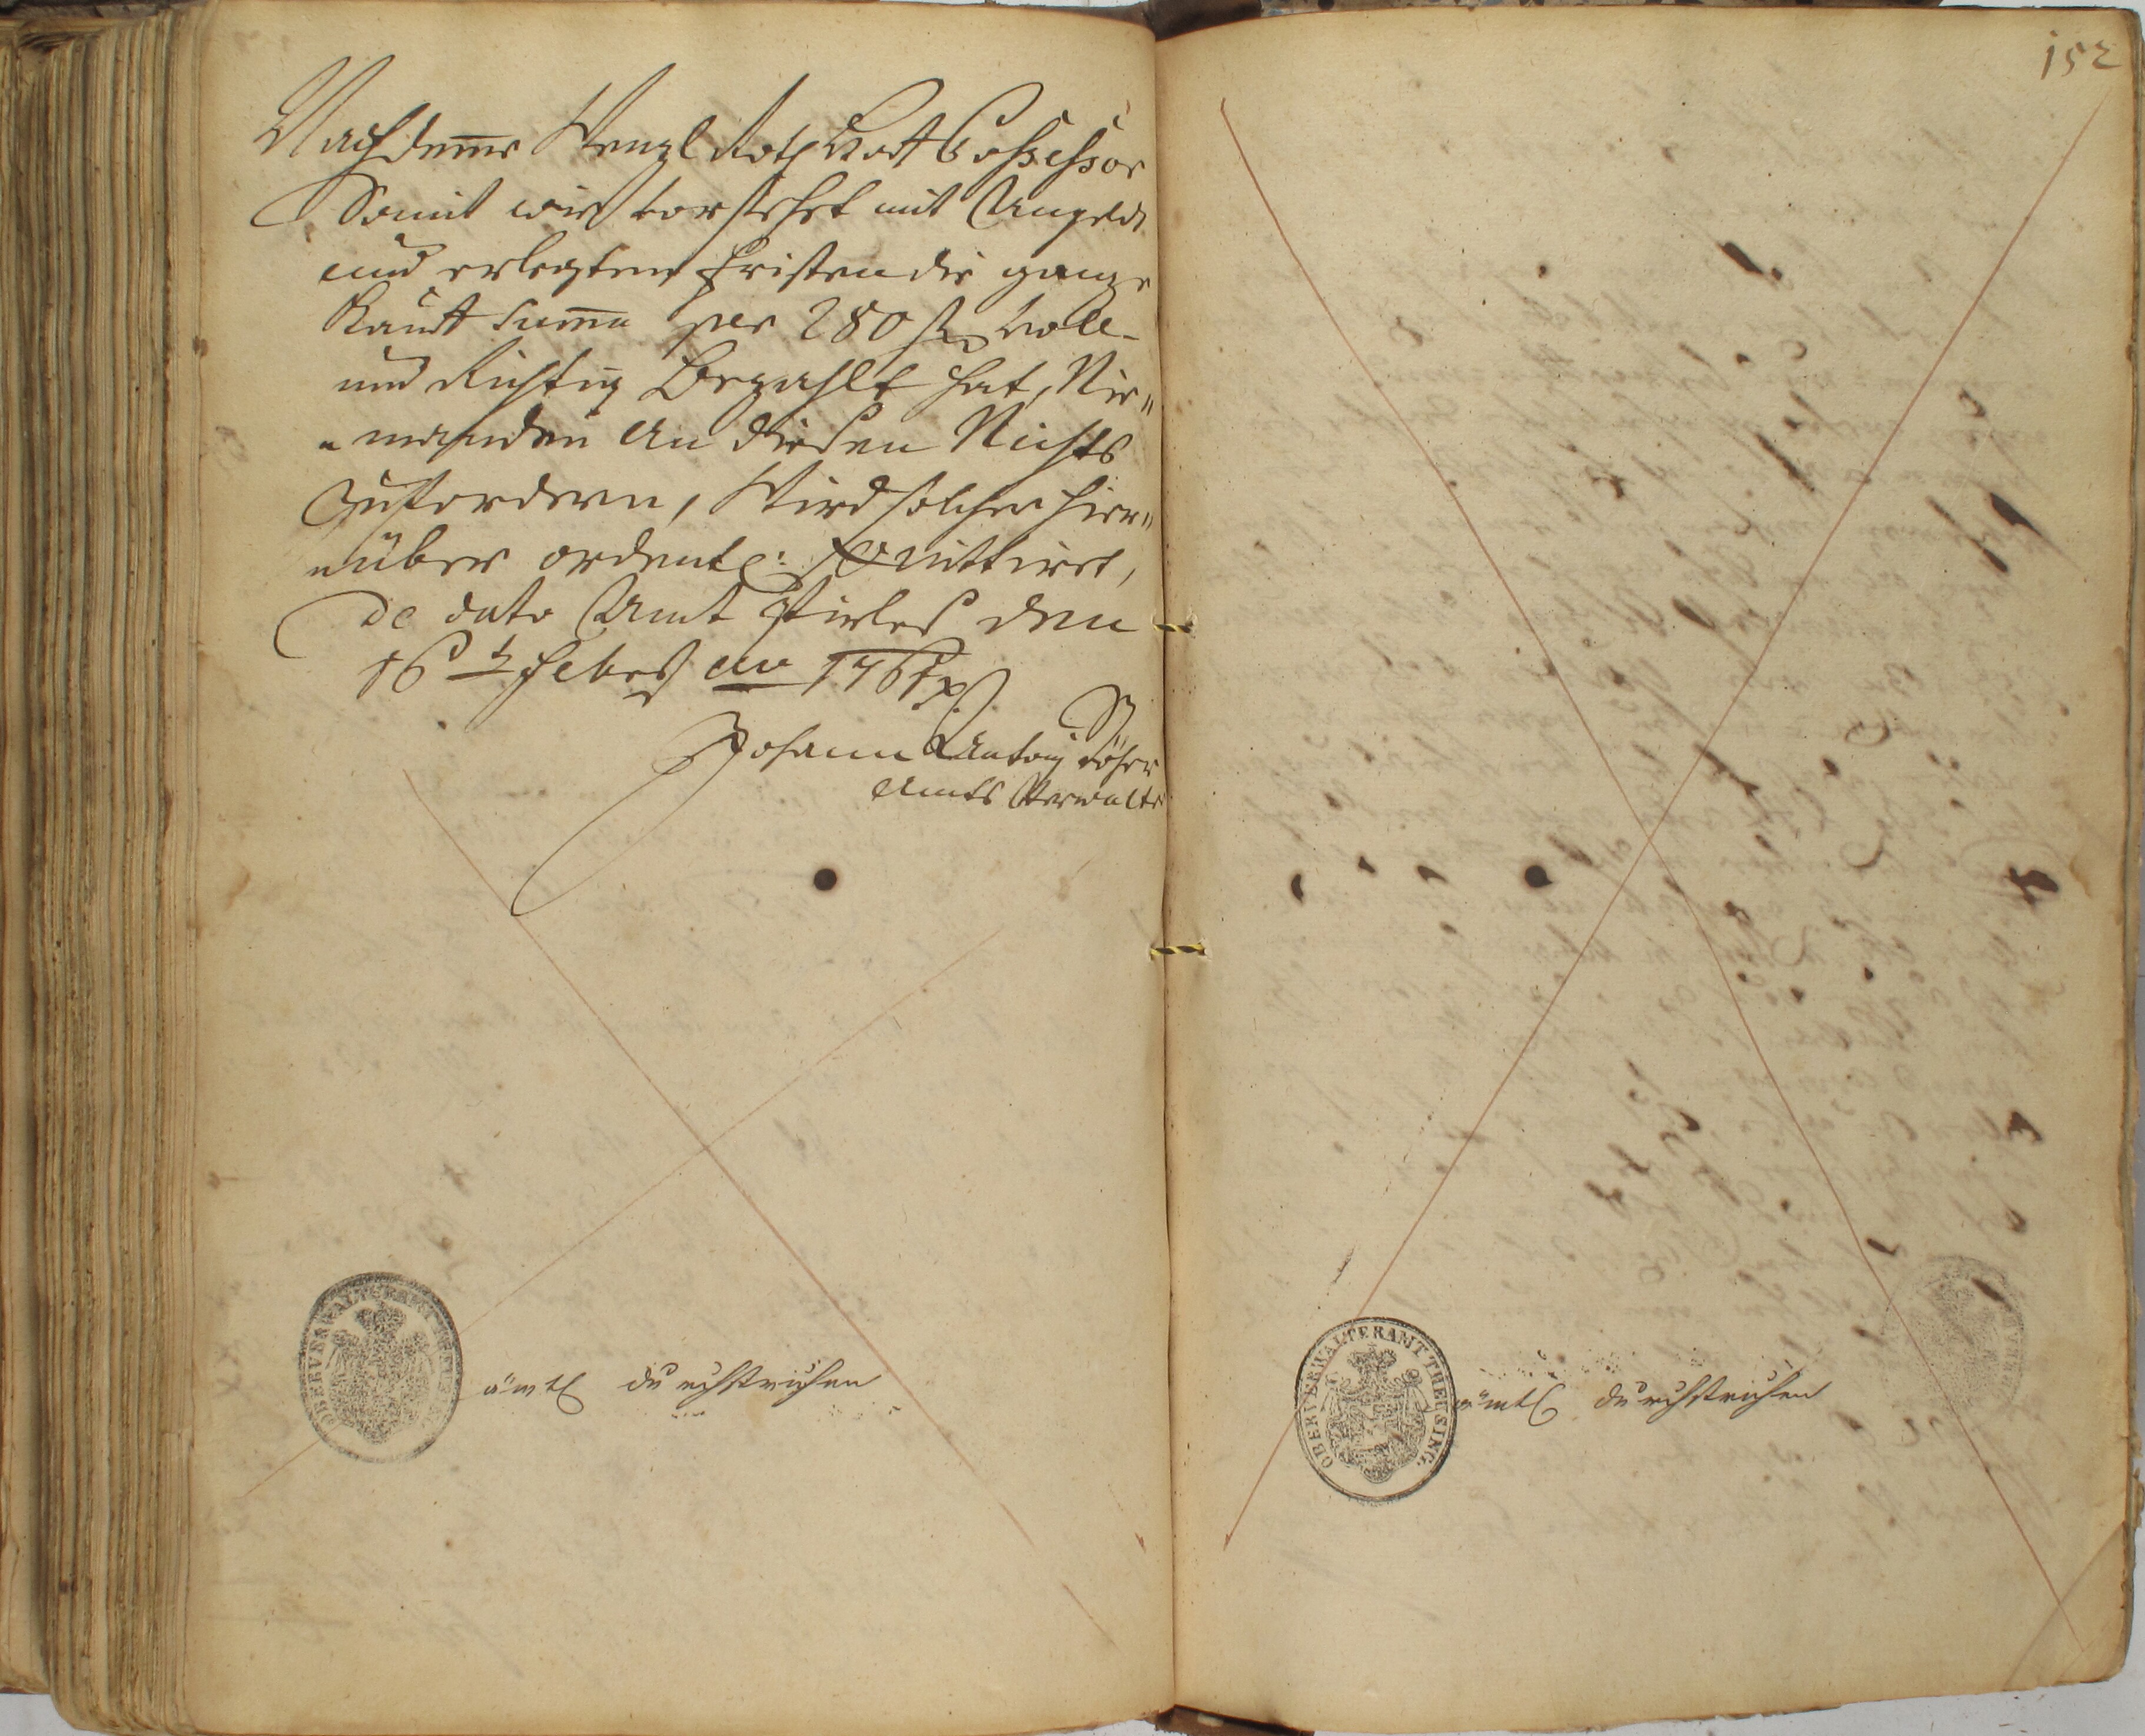 152
Nachdeme Wenzl Roth Possessor
Somit wie vorstehet mit Angeld
und erlegten Fristen die gantze
Kauff Summa per 280 fl Voll-
und Richtig Bezahlt hat, Nie"
"manden an diesen Nichts
Zufordern, Wird solcher hier"
"über ordentl: Quittiret,
de dato Amt den
16t Febr ao 1761
Johann Antoni
Amts Verwalter
OBERVERWALTERAMT
ämtl durchstrichen
OBERVERWALTERAMT THEUSING.
ämtl durchstrichen